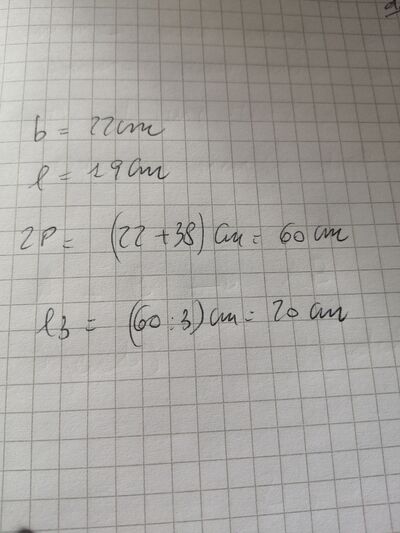 b = 22cm
l = 19cm
2P = (22+38) cm = 60 cm
l3 = (60:3) cm = 20 cm